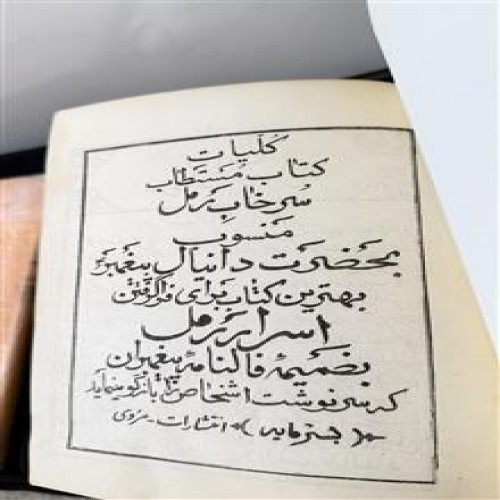 کلیات
کتاب مستطاب
سرخاب رمل
منسوب
بحضرت دانیال پیغمبر
بهترین کتاب برای فراگرفتن
اسرار رمل
بضمیمهٔ فالنامهٔ پیغمبران
که سرنوشت اشخاص را بازگو مینماید
انتشارات - مروی